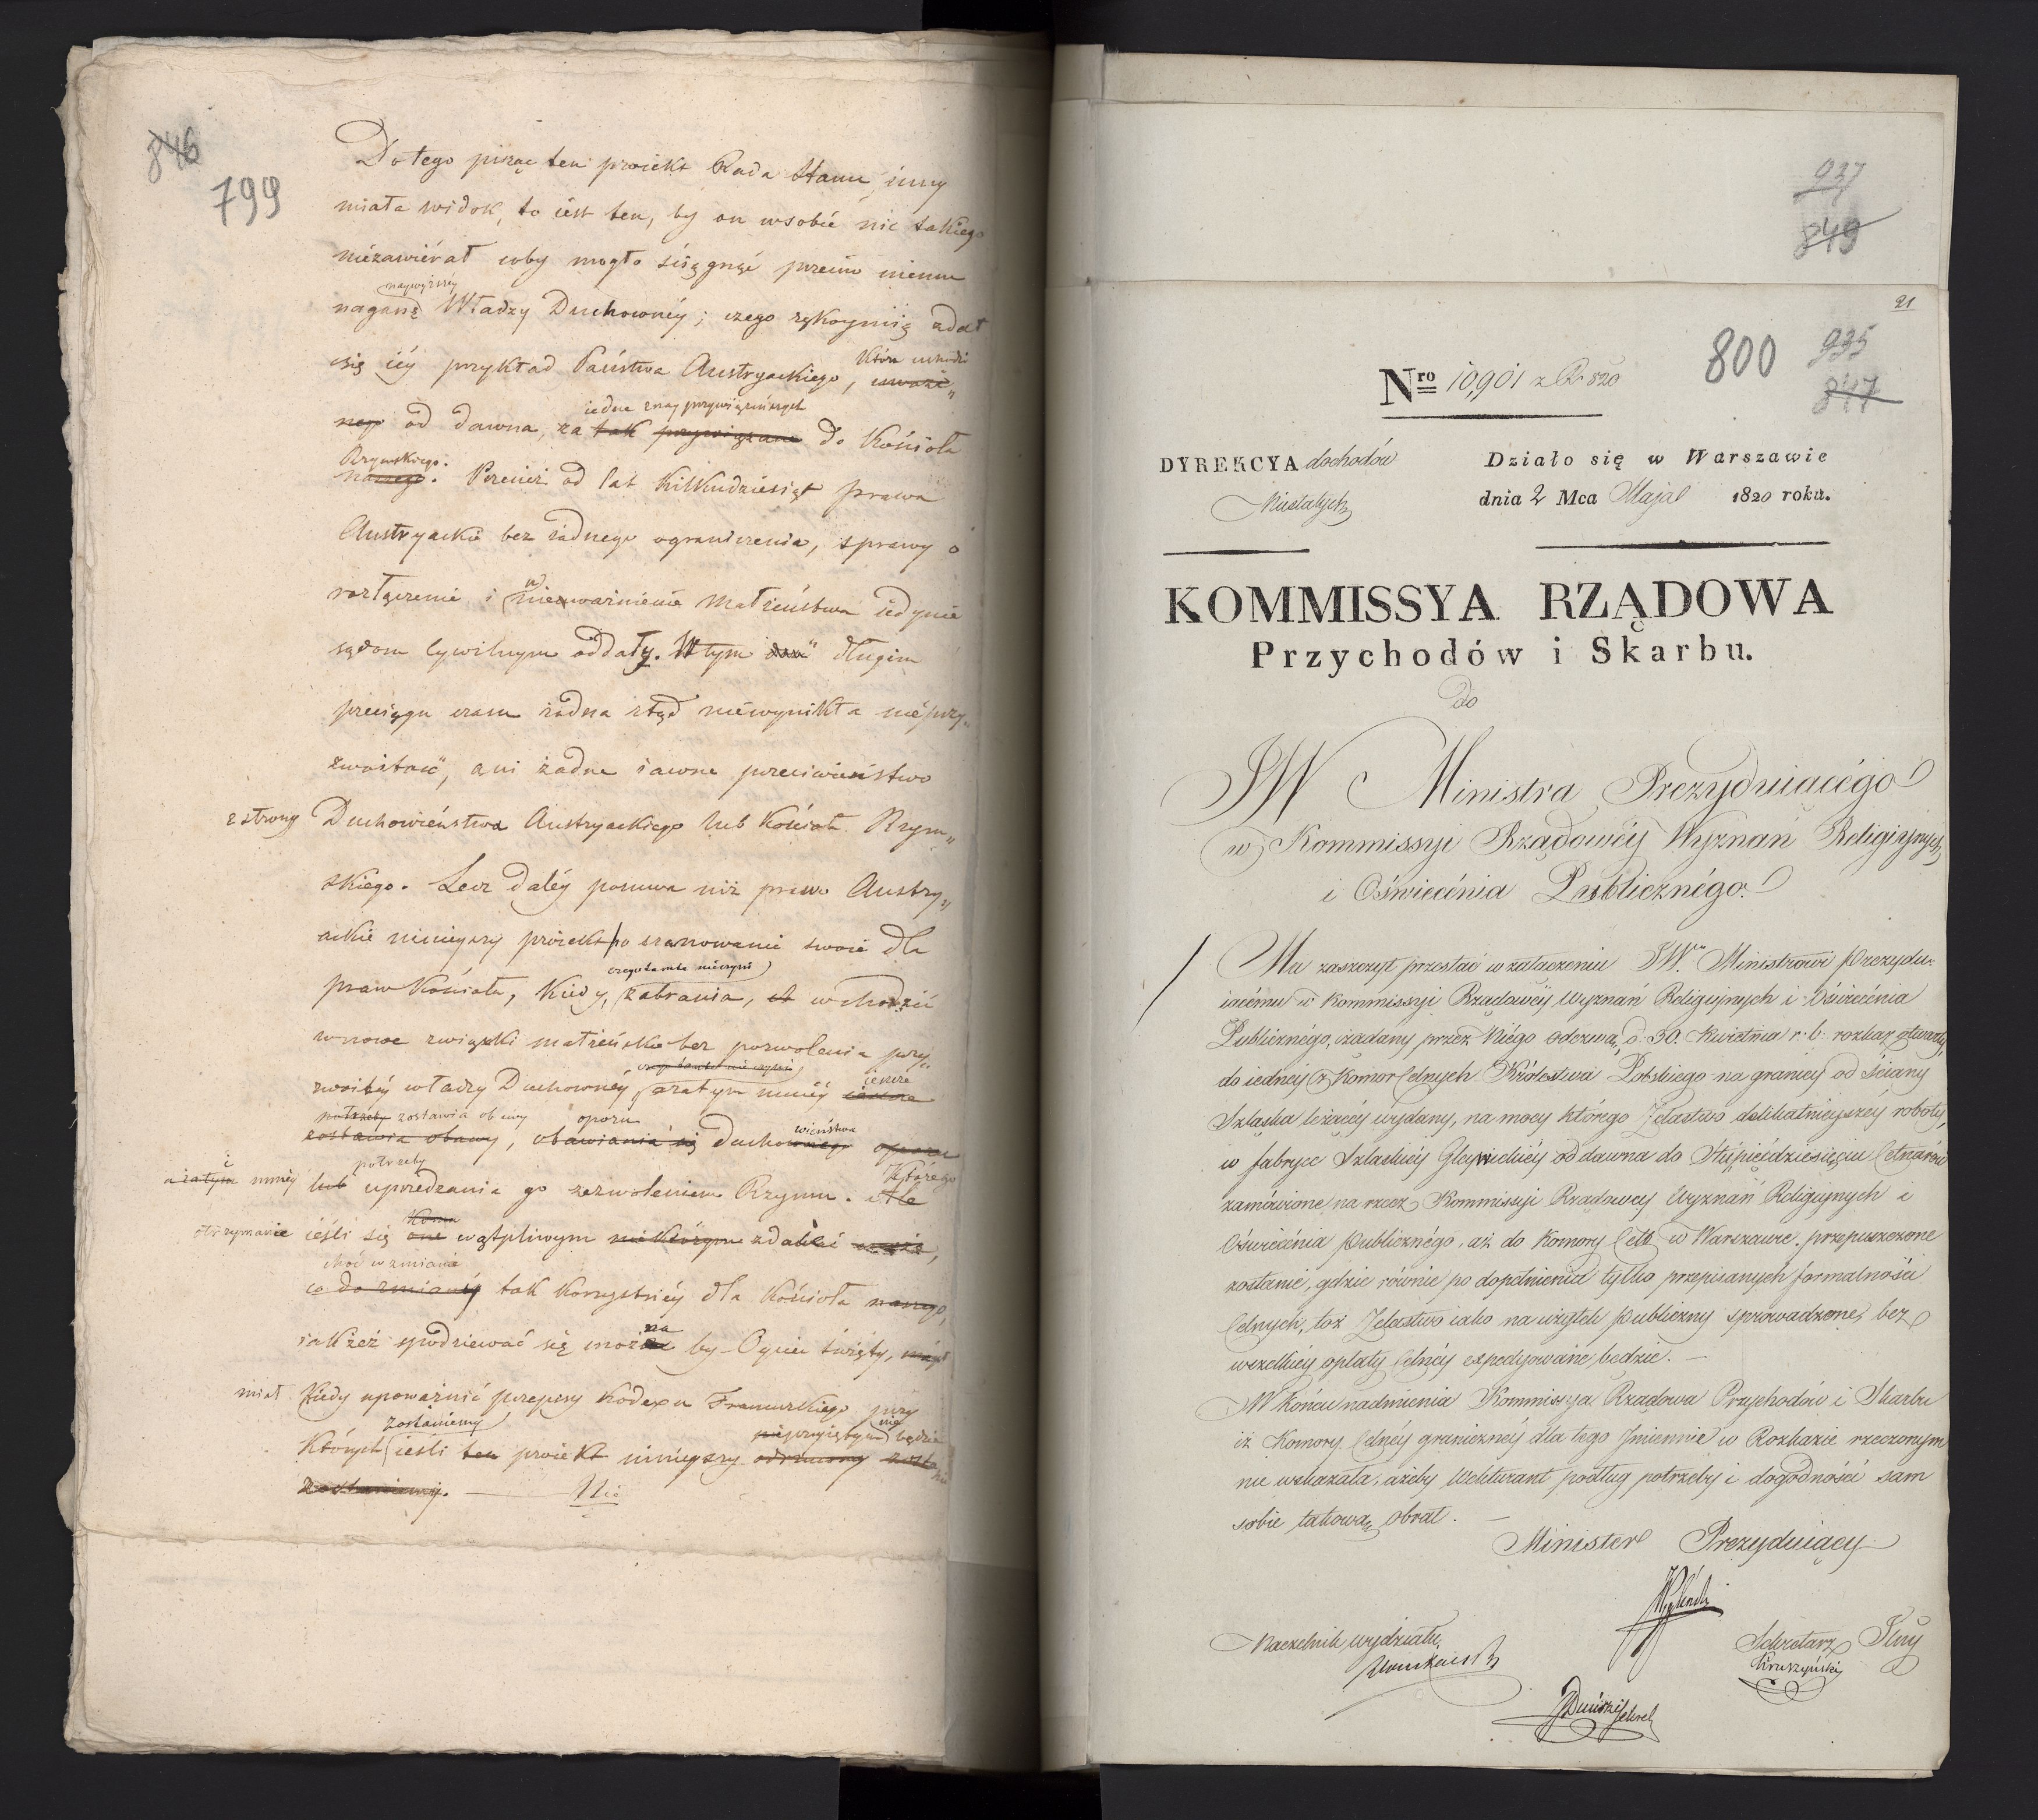 846
799
Do tego pisząc ten proiekt Rada Stanu, inny
miała widok, to iest ten, by on w sobie nic takiego
niezawiérał coby mogło ściągnąć przeciw niemu
naywyższéy
naganę Władzy Duchownéy; czego rękoymią zdał
się iéy przykład Państwa Austryackiego, które uchodzi
od dawna, za iedne z nayprzywiązańszych do Kościoła
Rzymskiego. Przecież od lat kilkudziesiąt prawa
Austryackie bez żadnego ograniczenia, sprawy o
rozłączenie i unieważnienie Małżeństwa iedynie
sądom Cywilnym oddały. W tym długim
przeciągu czasu żadna ztąd niewynikła nieprzy„
zwoitość, ani żadne iawne przeciwieństwo
z strony Duchowieństwa Austryackiego lub Kościoła Rzym„
skiego. Lecz daléy posuwa niż prawo Austry„
ackie ninieyszy proiekt to szanowanie swoie dla
czego tamta nieczyni
praw Kościoła, kiedy, zabrania, wchodzić
w nowe związki małżeńskie bez pozwolenia przy„
zwoitéy władzy Duchownéy, zatym mniéy ieszcze
zostawia obawy oporu Duchowieństwa
i mniéy potrzeby uprzedzania go zezwoleniem Rzymu. Którego
otrzymanie ieśli się komu wątpliwym zdaie,
choć w zmianie
tak korzystnéy dla Kościoła
iakżeż spodziewać się można by Oyciec święty,
miał kiedy upoważnić przepisy Kodexu Francuzkiego przy
Których zostaniemy ieśli proiekt ninieyszy nie przyiętym będzie
937
849
21
800
935
847
Nro 10,901 z R. 820
DYREKCYA dochodów
Niestałych
Działo się w Warszawie
dnia 2 Mca Maja 1820 roku.
KOMMISSYA RZĄDOWA
Przychodów i Skarbu.
do
JW Ministra Prezyduiącégo
w Kommissyi Rządowéy Wyznań Religiynych
i Oświecénia Publicznégo.
Ma zaszczyt przesłać w załączeniu JW. Ministrowi Prezydu-
iącému w Kommissyi Rządowéy Wyznań Religiynych i Oświecénia
Publicznégo, żądany przez Niégo odezwą, d. 30. Kwietnia r. b. rozkaz otwarty,
do iednéy z Komor Celnych Królestwa Polskiego na granicy od Ściany
Szląska leżącéy wydany, na mocy którego Żelastwo delikatnieyszéy roboty,
w fabryce Szląskiéy Gleywickiéy od dawna do Stupięćdziesięciu Cetnarów
zamówione, na rzecz Kommissyi Rządowéy Wyznań Religiynych i
Oświecénia Publicznégo, aż do Komory Celn w Warszawie przepuszczone
zostanie, gdzie równie po dopełnieniu tylko przepisanych formalności
Celnych, toż Żelastwo iako na użytek Publiczny sprowadzone, bez
wszelkiéy opłaty Celnéy expedyowane będzie. —
W końcu nadmienia Kommissya Rządowa Przychodów i Skarbu
iż Komory Celnéy granicznéy dla tego Jmiennie w Rozkazie rzeczonym
nie wskazała, ażeby Wekturant podług potrzeby i dogodności sam
sobie takową obrał. —
Minister Prezyduiący
Naczelnik wydziału,
Sekretarz Jlny
Kruszyński